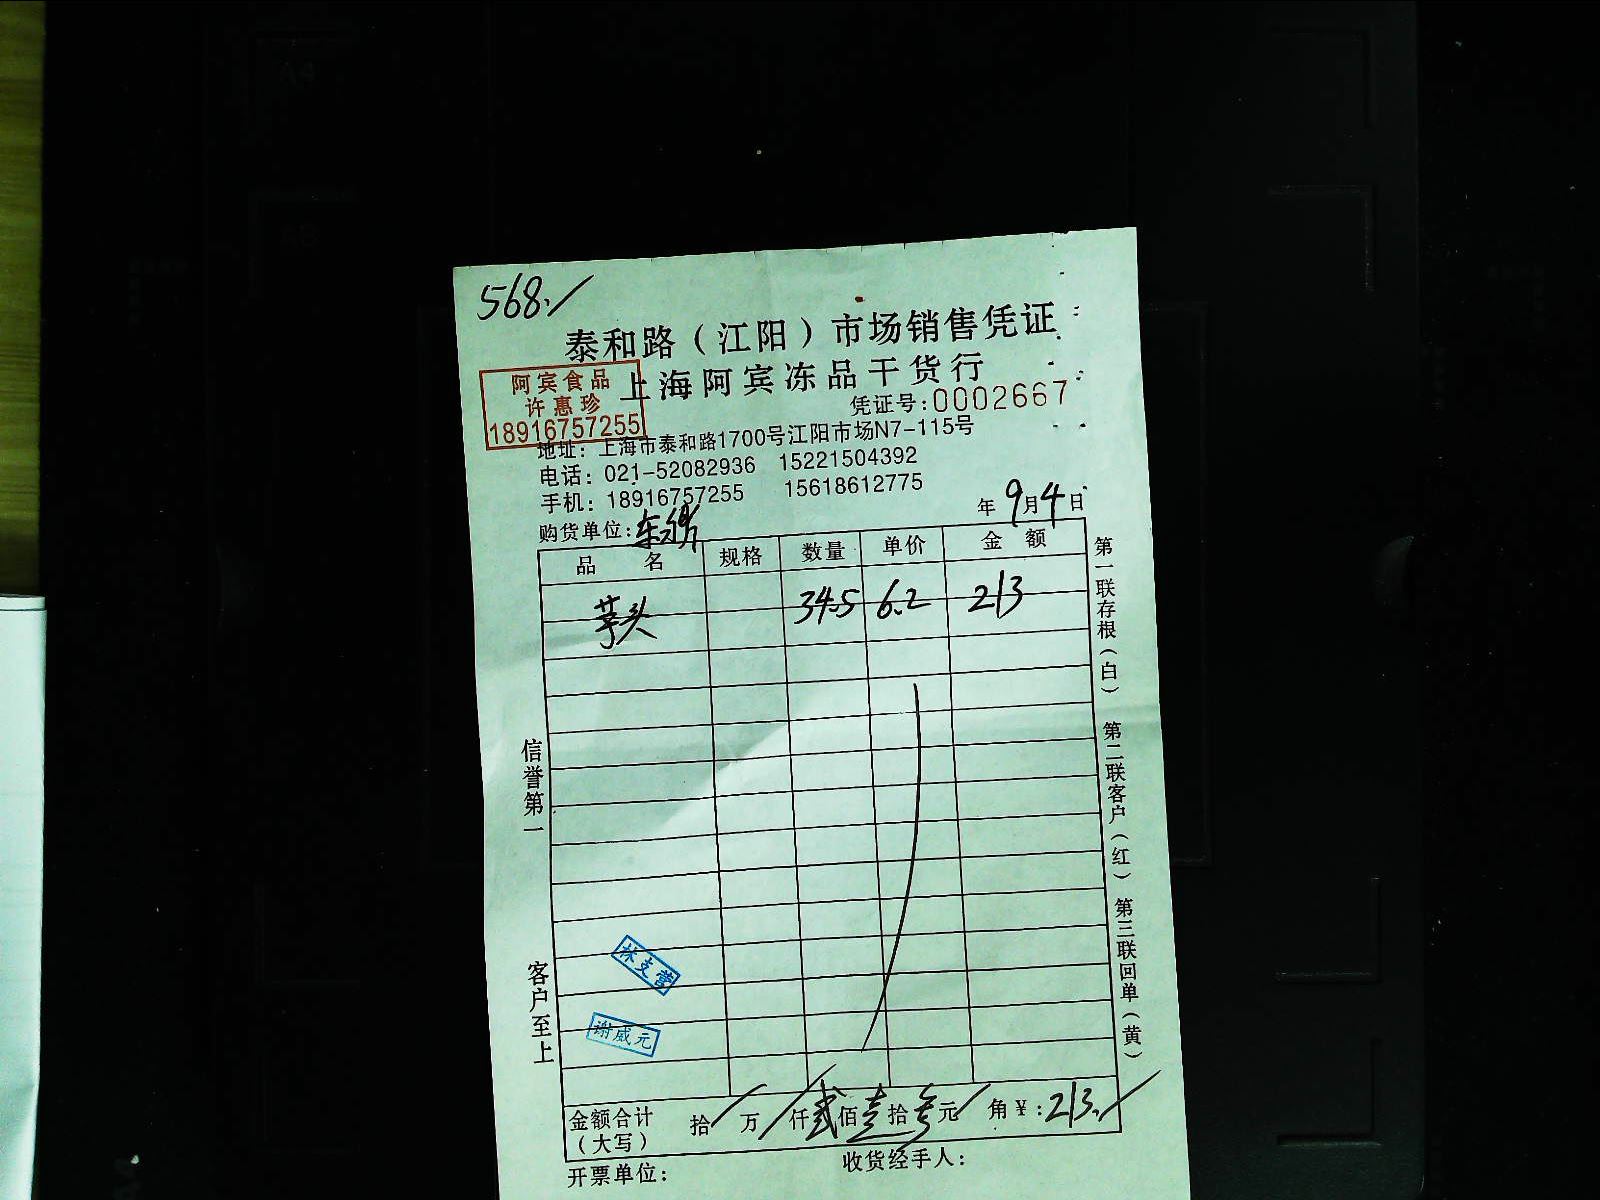 568.
泰和路（江阳）市场销售凭证
上海阿宾冻品干货行
阿宾食品
许惠珍
18916757255
凭证号:0002667
地址：上海市泰和路1700号江阳市场N7-115号
电话：021-52082936 15221504392
手机：18916757255 15618612775
年9月4日
购货单位:
品 名 规格 数量 单价 金 额
芋头 34.5 6.2 213
第一联存根（白） 第二联客户（红） 第三联回单（黄）
信誉第一
客户至上
林支营
谢威元
金额合计（大写） 拾 万 仟贰佰壹拾叁元 角¥:213.
开票单位: 收货经手人: